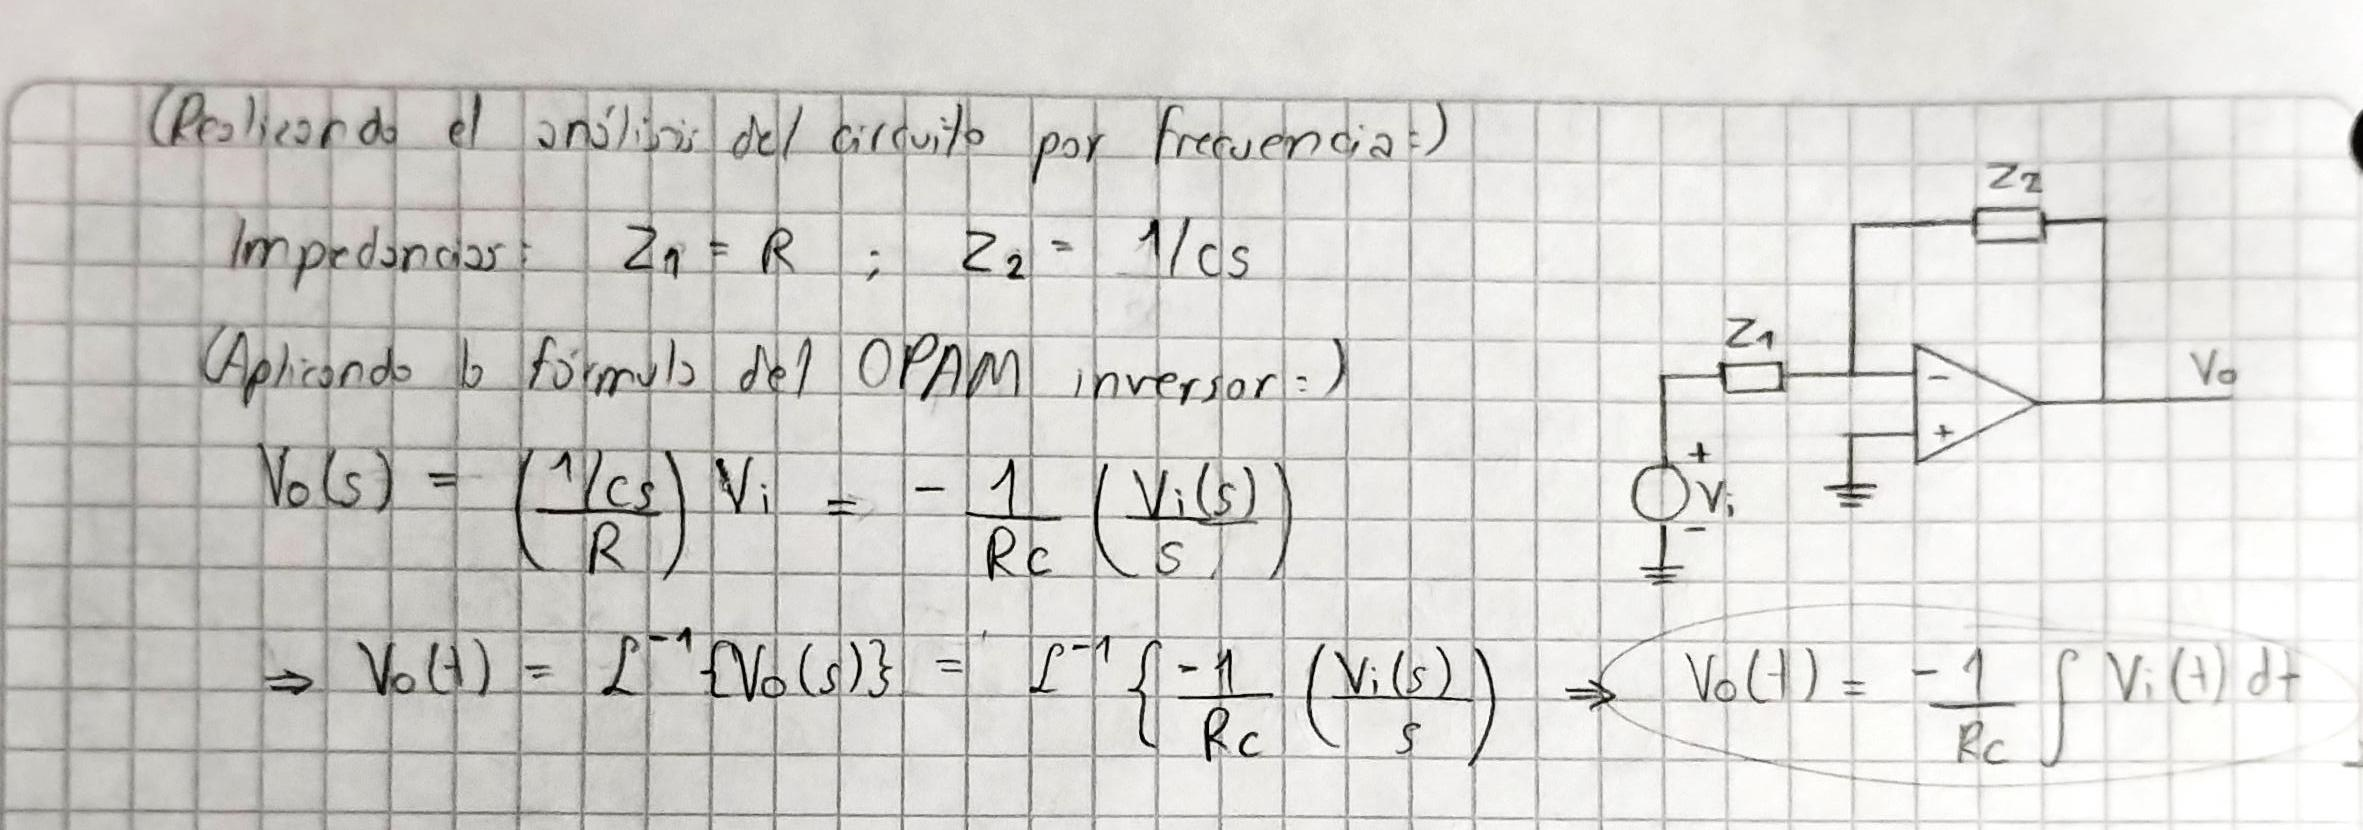 (Realizando el análisis del circuito por frecuencia:)
Impedancias: Z₁ = R ; Z₂ = 1/cs
(Aplicando la fórmula del OPAM inversor:)
Vo(s) = ( (1/cs) / R ) Vi = - 1/Rc ( Vi(s) / s )
⇒ Vo(t) = ℒ⁻¹{Vo(s)} = ℒ⁻¹ { -1/Rc ( Vi(s) / s ) ⇒ Vo(t) = -1/Rc ∫ Vi(t) dt
Z₂
Z₁
-
+
Vo
+
Vi
-